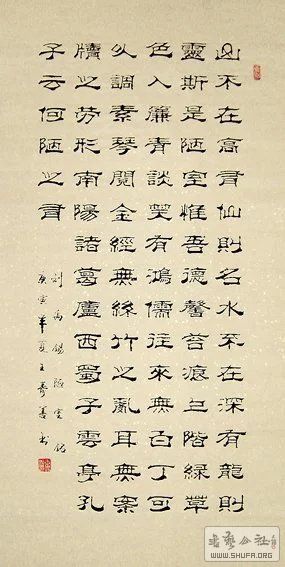 山不在高有仙則名水不在深有龍則
靈斯是陋室惟吾德馨苔痕上階綠草
色入簾青談笑有鴻儒往來無白丁可
以調素琴閱金經無絲竹之亂耳無案
牘之勞形南陽諸葛廬西蜀子雲亭孔
子云何陋之有
劉禹錫陋室銘
庚寅年夏王善书
書藝公社
WWW.SHUFA.ORG